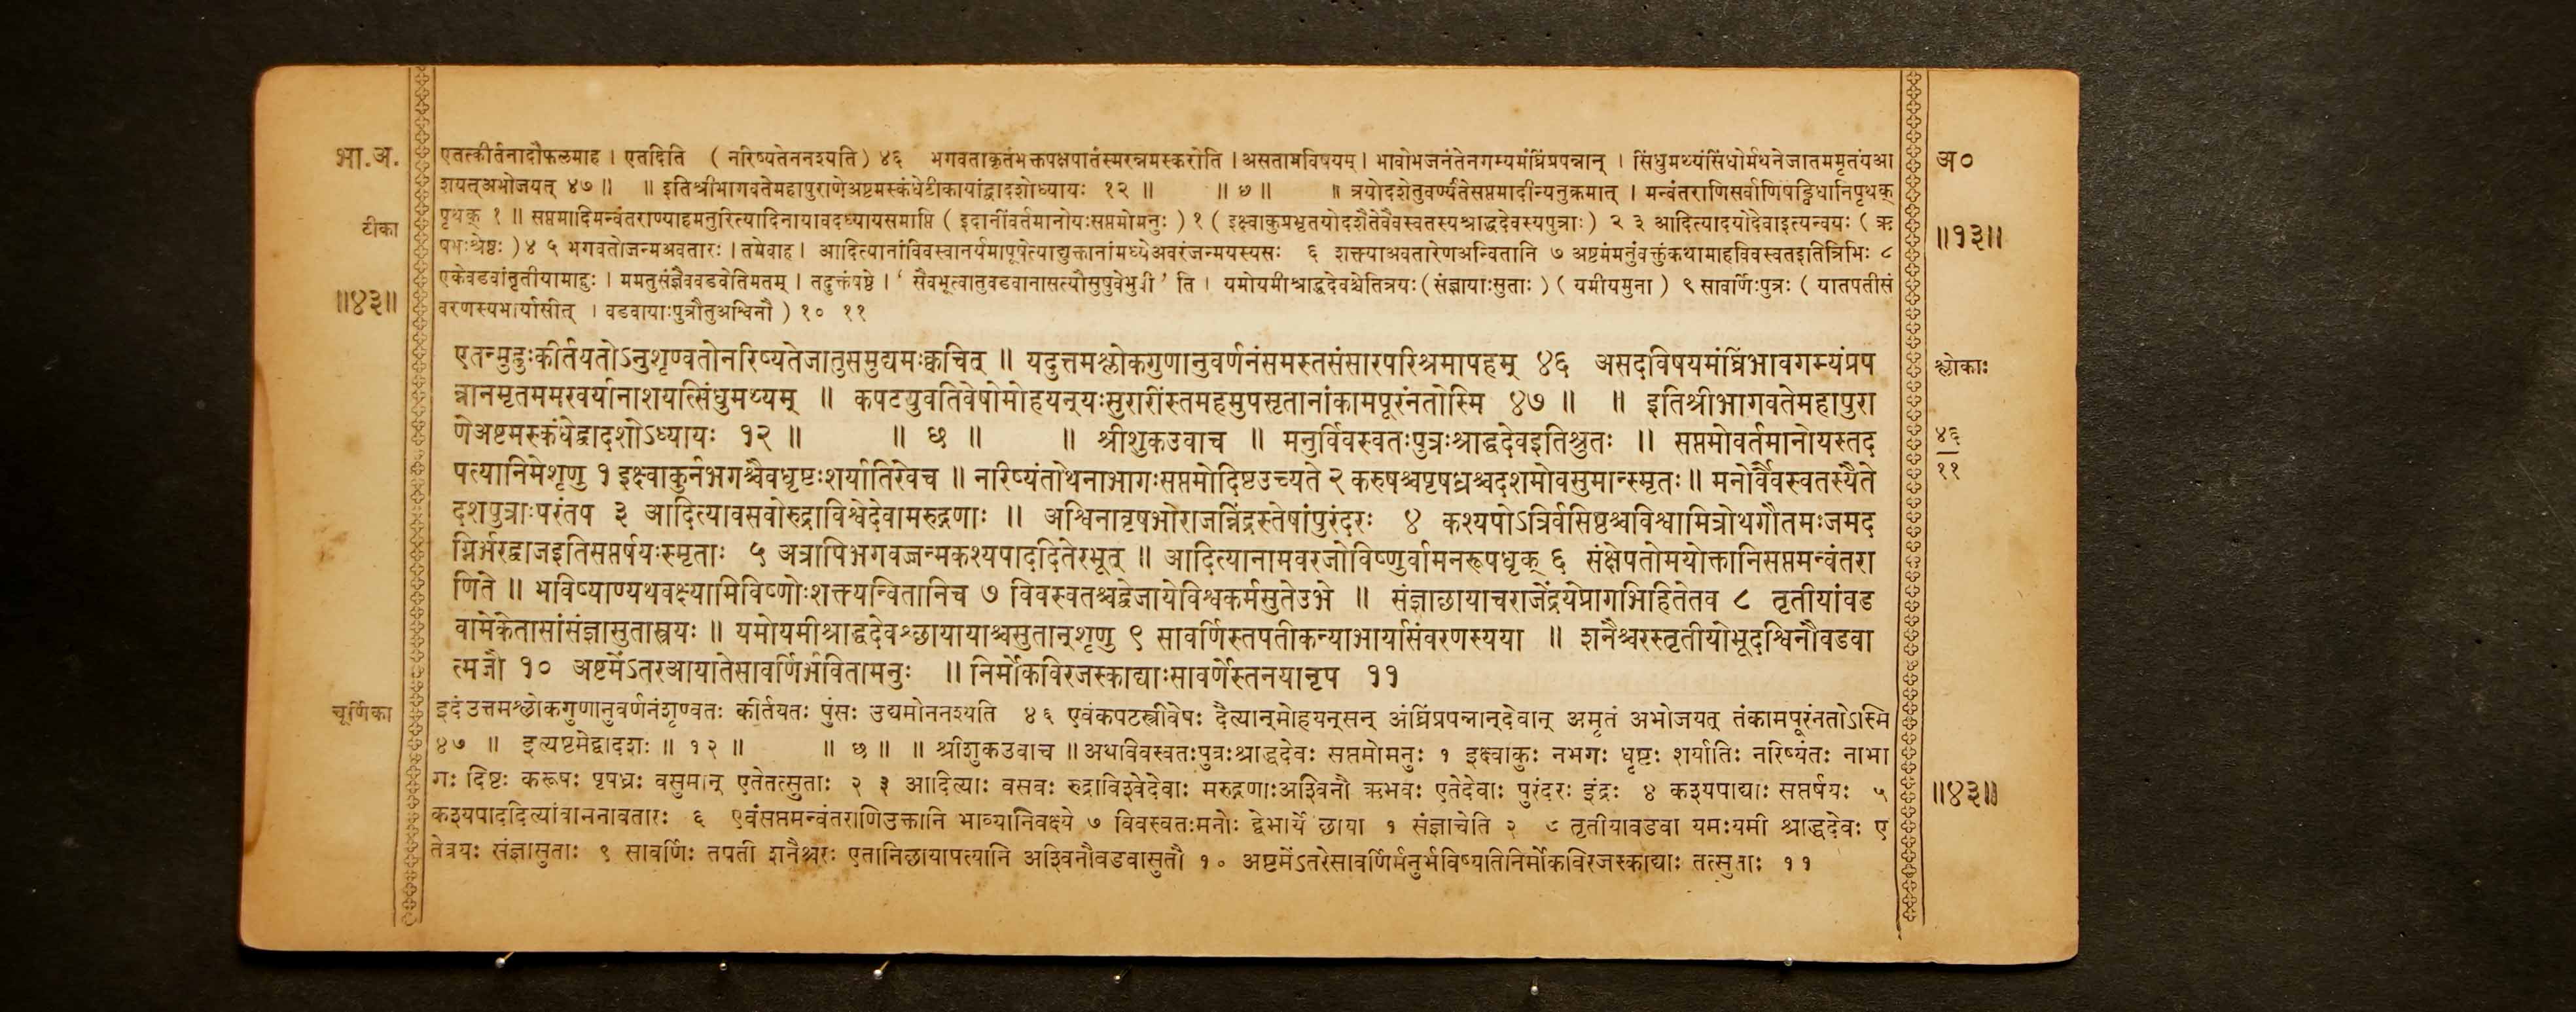 भा.अ.
एतत्कीर्तनादौफलमाह । एतदिति ( नरिष्यतेननश्यति ) ४६ भगवताकृतंभक्तपक्षपातंस्मरन्नमस्करोति । असतामविषयम् । भावोभजनंतेनगम्यमंघ्रिंप्रपन्नान् । सिंधुमथ्यंसिंधोर्मथनेजातममृतंयआ
अ०
शयत्अभोजयत् ४७ ॥ ॥ इतिश्रीभागवतेमहापुराणेअष्टमस्कंधेटीकायांद्वादशोध्यायः १२ ॥ ॥ ७ ॥ ॥ त्रयोदशेतुवर्ण्यंतेसप्तमादीन्यनुक्रमात् । मन्वंतराणिसर्वाणिषड्विधानिपृथक्
टीका
पृथक् १ ॥ सप्तमादिमन्वंतराण्याहमनुरित्यादिनायावदध्यायसमाप्ति ( इदानींवर्तमानोयःसप्तमोमनुः ) १ ( इक्ष्वाकुप्रभृतयोदशैतेवैवस्वतस्यश्राद्धदेवस्यपुत्राः ) २ ३ आदित्यादयोदेवाइत्यन्वयः ( ऋ
॥१३॥
षभःश्रेष्ठः ) ४ ५ भगवतोजन्मअवतारः । तमेवाह । आदित्यानांविवस्वानर्यमापूषेत्याद्युक्तानांमध्येअवरंजन्मयस्यसः ६ शक्त्याअवतारेणअन्वितानि ७ अष्टमंमनुंवक्तुंकथामाहविवस्वतइतित्रिभिः ८
॥४३॥
एकेवडवांतृतीयामाहुः । ममतुसंज्ञैववडवेतिमतम् । तदुक्तंषष्ठे । ‘ सैवभूत्वातुवडवानासत्यौसुषुवेभुवी ’ ति । यमोयमीश्राद्धदेवश्चेतित्रयः ( संज्ञायाःसुताः ) ( यमीयमुना ) ९ सावर्णिःपुत्रः ( यातपतीसं
वरणस्यभार्यासीत् । वडवायाःपुत्रौतुअश्विनौ ) १० ११
एतन्मुहुःकीर्तयतोऽनुशृण्वतोनरिष्यतेजातुसमुद्यमःक्वचित् ॥ यदुत्तमश्लोकगुणानुवर्णनंसमस्तसंसारपरिश्रमापहम् ४६ असदविषयमंघ्रिंभावगम्यंप्रप
श्लोकाः
न्नानमृतममरवर्यानाशयत्सिंधुमथ्यम् ॥ कपटयुवतिवेषोमोहयन्यःसुरारींस्तमहमुपसृतानांकामपूरंनतोस्मि ४७ ॥ ॥ इतिश्रीभागवतेमहापुरा
णेअष्टमस्कंधेद्वादशोऽध्यायः १२ ॥ ॥ छ ॥ ॥ श्रीशुकउवाच ॥ मनुर्विवस्वतःपुत्रःश्राद्धदेवइतिश्रुतः ॥ सप्तमोवर्तमानोयस्तद
४६
पत्यानिमेशृणु १ इक्ष्वाकुर्नभगश्चैवधृष्टःशर्यातिरेवच ॥ नरिष्यंतोथनाभागःसप्तमोदिष्टउच्यते २ करुषश्चपृषध्रश्चदशमोवसुमान्स्मृतः ॥ मनोर्वैवस्वतस्यैते
११
दशपुत्राःपरंतप ३ आदित्यावसवोरुद्राविश्वेदेवामरुद्गणाः ॥ अश्विनावृषभोराजन्निंद्रस्तेषांपुरंदरः ४ कश्यपोऽत्रिर्वसिष्ठश्चविश्वामित्रोथगौतमःजमद
ग्निर्भरद्वाजइतिसप्तर्षयःस्मृताः ५ अत्रापिभगवज्जन्मकश्यपाददितेरभूत् ॥ आदित्यानामवरजोविष्णुर्वामनरूपधृक् ६ संक्षेपतोमयोक्तानिसप्तमन्वंतरा
णिते ॥ भविष्याण्यथवक्ष्यामिविष्णोःशक्त्यन्वितानिच ७ विवस्वतश्चद्वेजायेविश्वकर्मसुतेउभे ॥ संज्ञाछायाचराजेंद्रयेप्रागभिहितेतव ८ तृतीयांवड
वामेकेतासांसंज्ञासुतास्त्रयः ॥ यमोयमीश्राद्धदेवश्छायायाश्चसुतान्शृणु ९ सावर्णिस्तपतीकन्याभार्यासंवरणस्यया ॥ शनैश्चरस्तृतीयोभूदश्विनौवडवा
त्मजौ १० अष्टमेंऽतरआयातेसावर्णिर्भवितामनुः ॥ निर्मोकविरजस्काद्याःसावर्णेस्तनयानृप ११
चूर्णिका
इदंउत्तमश्लोकगुणानुवर्णनंशृण्वतः कीर्तयतः पुंसः उद्यमोननश्यति ४६ एवंकपटस्त्रीवेषः दैत्यान्मोहयन्सन् अंघ्रिंप्रपन्नान्देवान् अमृतं अभोजयत् तंकामपूरंनतोऽस्मि
४७ ॥ इत्यष्टमेद्वादशः ॥ १२ ॥ ॥ छ ॥ ॥ श्रीशुकउवाच ॥ अथविवस्वतःपुत्रःश्राद्धदेवः सप्तमोमनुः १ इक्ष्वाकुः नभगः धृष्टः शर्यातिः नरिष्यंतः नाभा
गः दिष्टः करूषः पृषध्रः वसुमान् एतेतत्सुताः २ ३ आदित्याः वसवः रुद्राविश्वेदेवाः मरुद्गणाःअश्विनौ ऋभवः एतेदेवाः पुरंदरः इंद्रः ४ कश्यपाद्याः सप्तर्षयः ५
॥४३॥
कश्यपाददित्यांवामनावतारः ६ एवंसप्तमन्वंतराणिउक्तानि भाव्यानिवक्ष्ये ७ विवस्वतःमनोः द्वेभार्ये छाया १ संज्ञाचेति २ ८ तृतीयावडवा यमःयमी श्राद्धदेवः ए
तेत्रयः संज्ञासुताः ९ सावर्णिः तपती शनैश्चरः एतानिछायापत्यानि अश्विनौवडवासुतौ १० अष्टमेंऽतरेसावर्णिर्मनुर्भविष्यतिनिर्मोकविरजस्काद्याः तत्सुताः ११